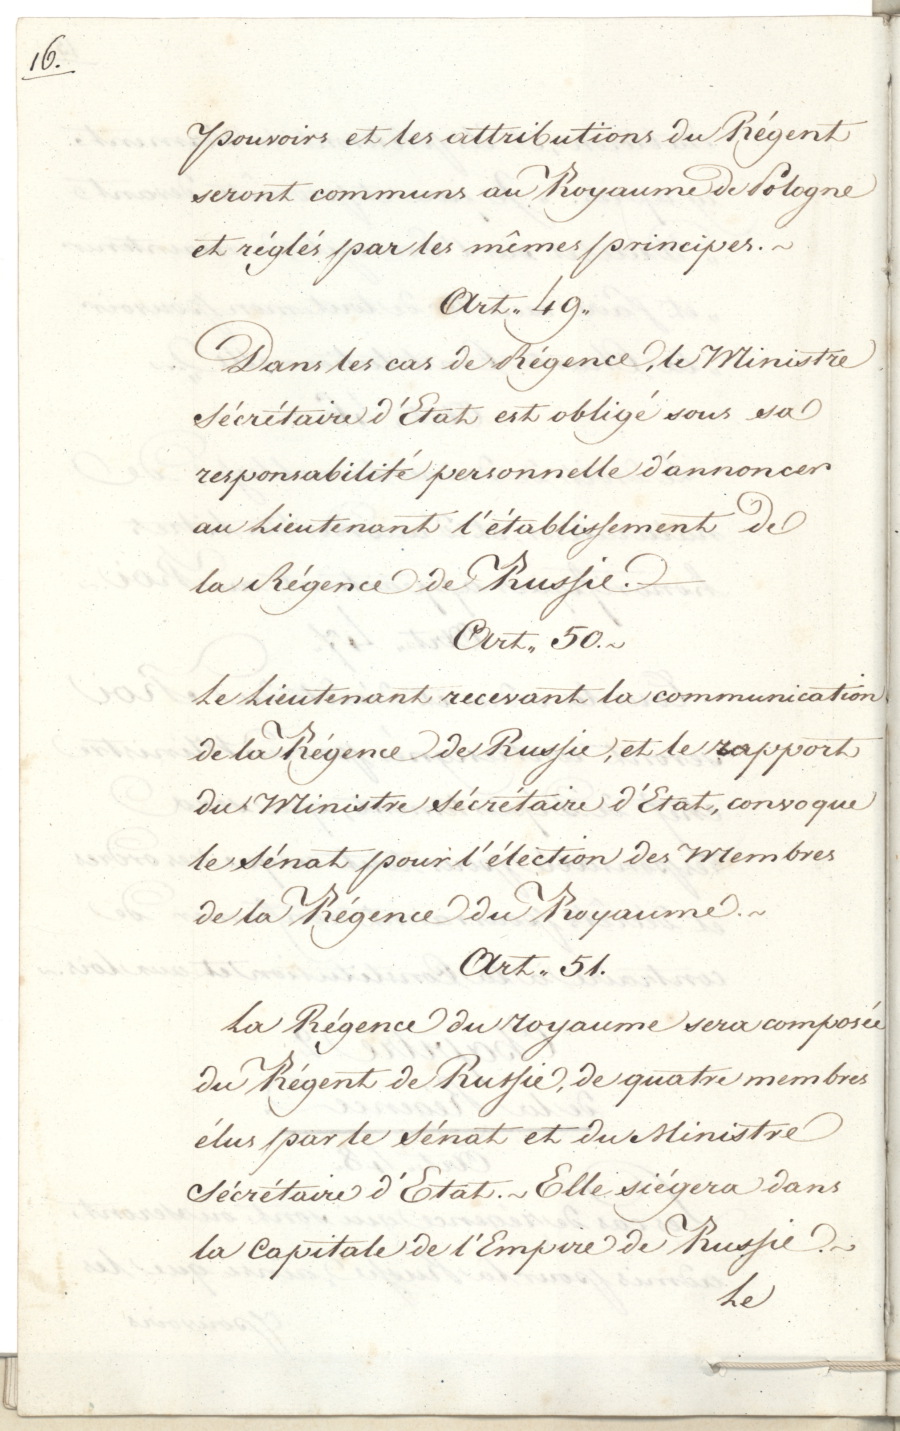 16.
pouvoirs et les attributions du Régent
seront communs au Royaume de Pologne
et réglés par les mêmes principes.~
Art. 49.
Dans les cas de Régence, le Ministre
Sécrétaire d'Etat est obligé sous sa
responsabilité personnelle d'annoncer
au Lieutenant l'établissement de
la Régence de Russie.
Art. 50.~
Le Lieutenant recevant la communication
de la Régence de Russie, et le rapport
du Ministre Sécrétaire d'Etat, convoque
le Sénat pour l'élection des Membres
de la Régence du Royaume.~
Art. 51.
La Régence du royaume sera composée
du Régent de Russie, de quatre membres
élus par le Sénat et du Ministre
Sécrétaire d'Etat.~ Elle siégera dans
la Capitale de l'Empire de Russie.~
Le